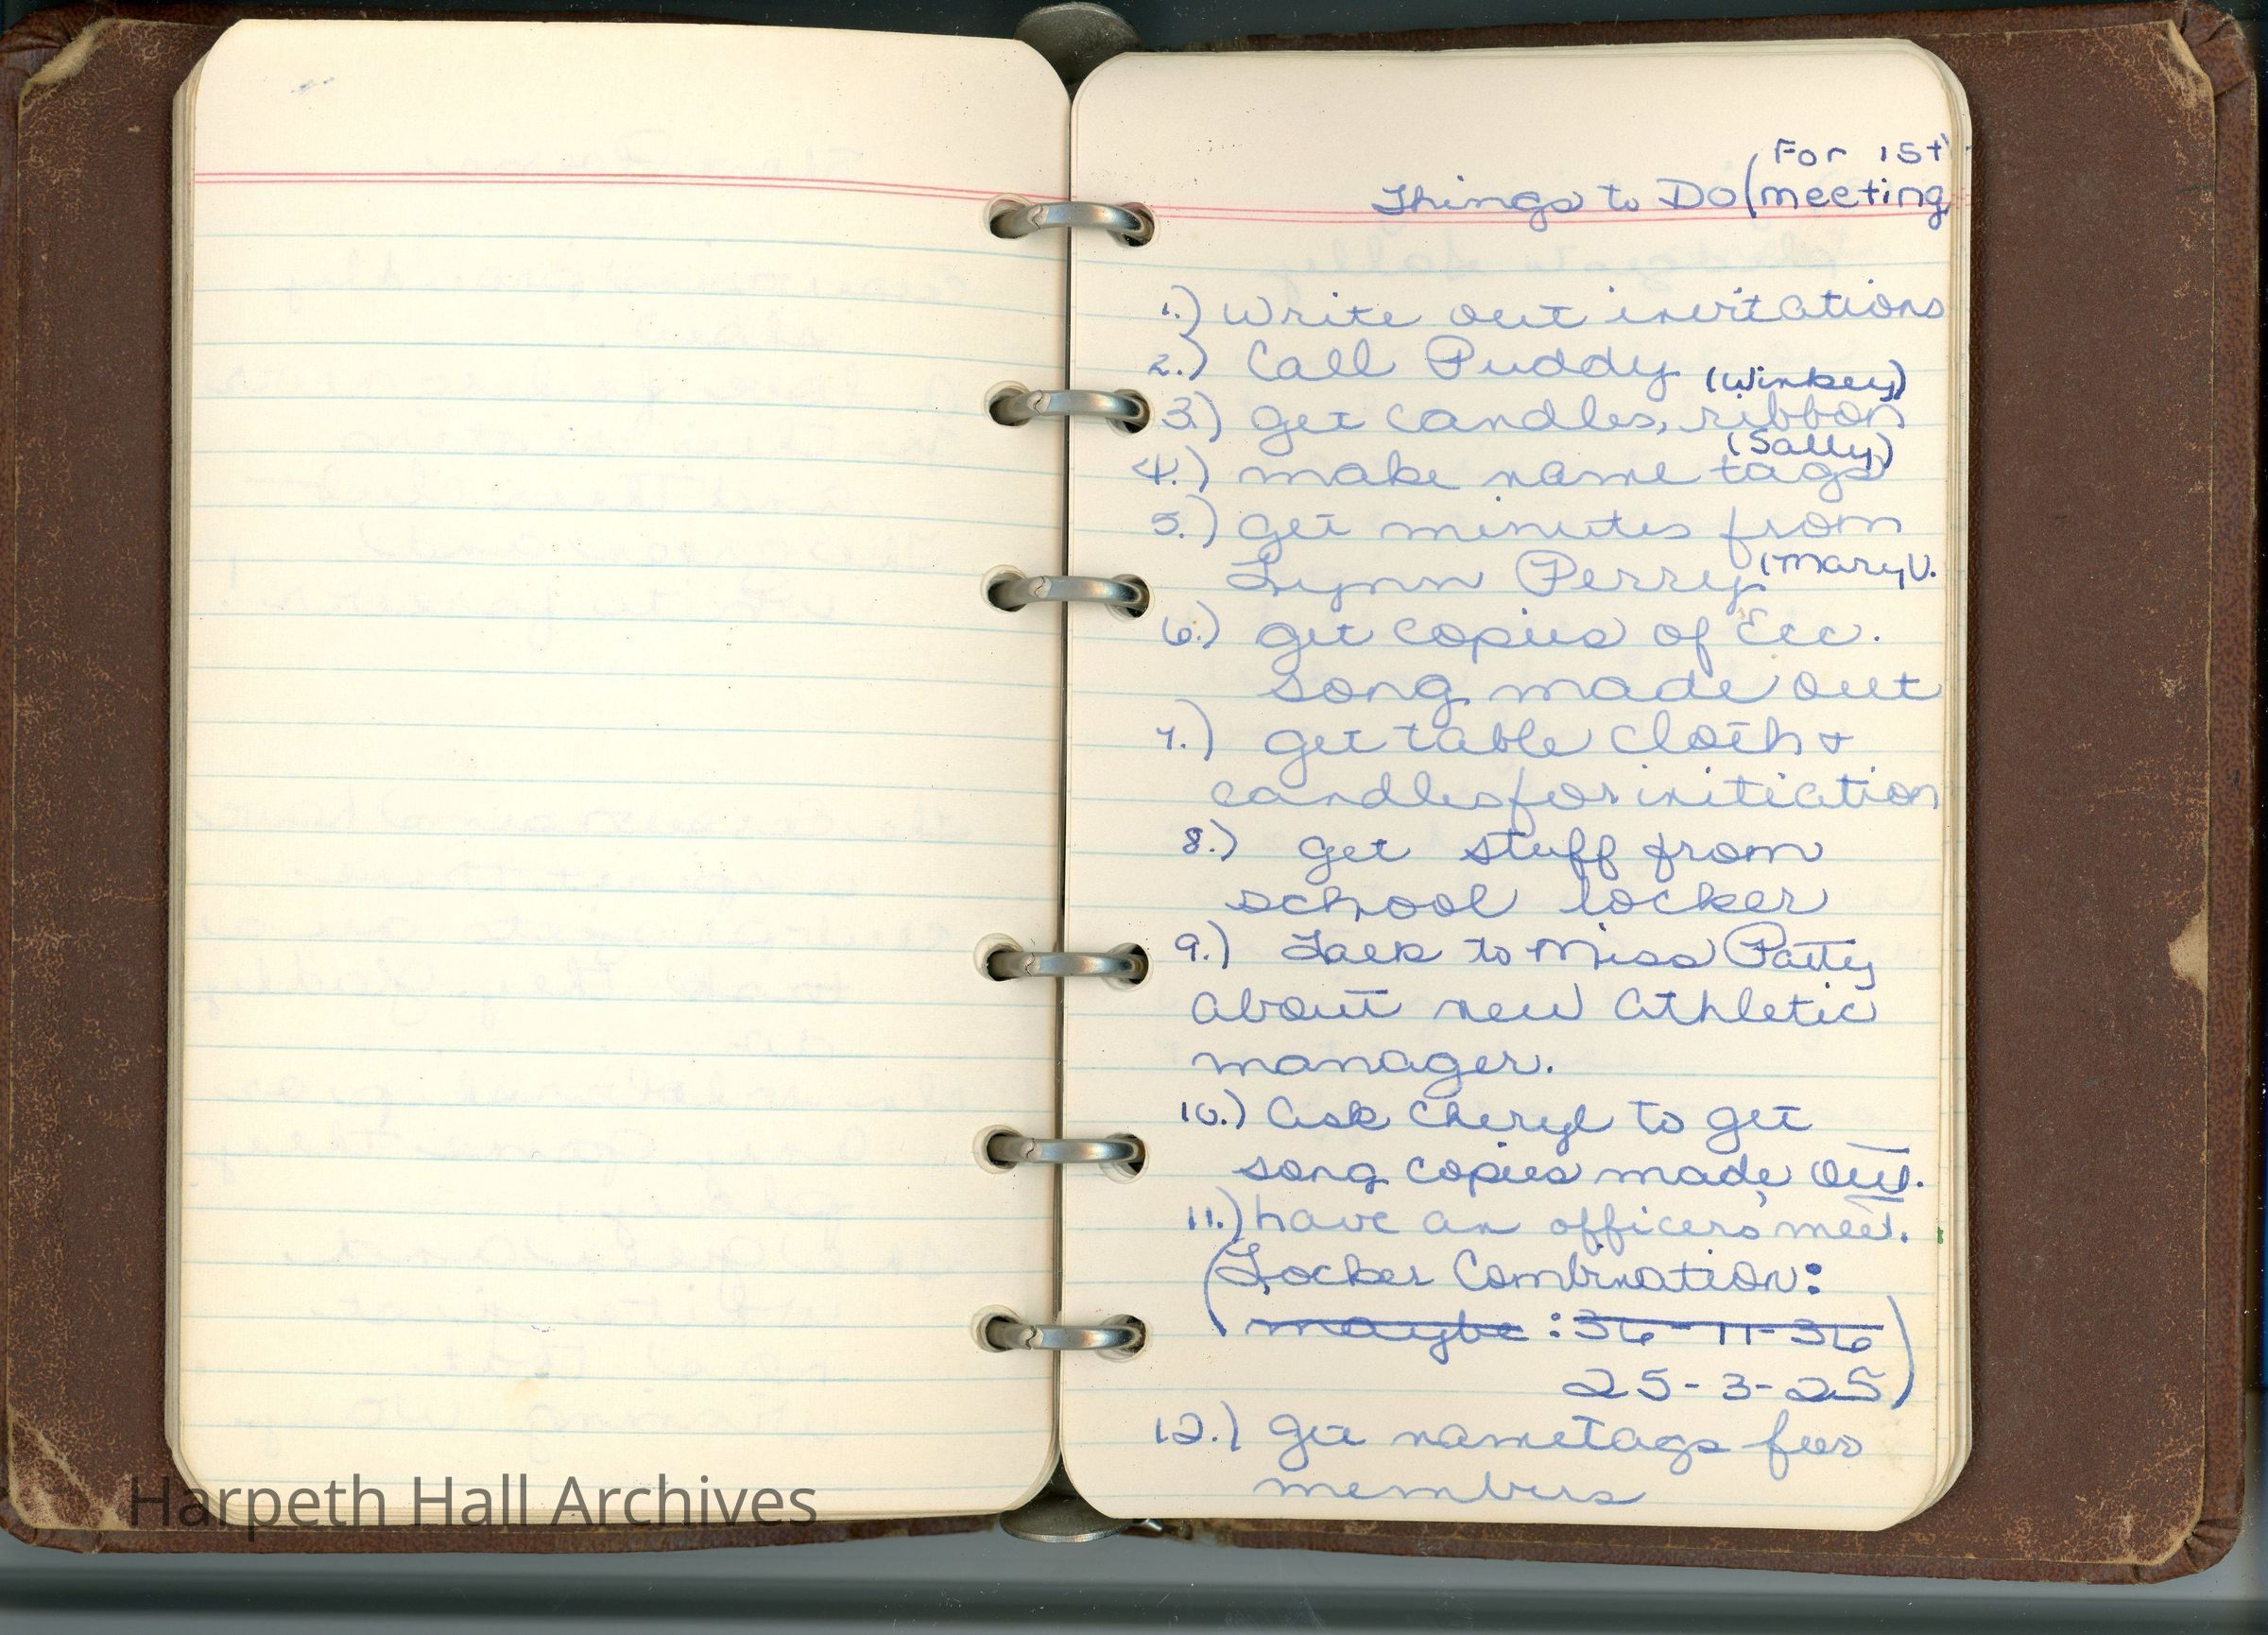 For 1st
Things to Do (meeting)
1.) Write out invitations
2.) Call Puddy
(Winkey)
3.) get candles, ribbon
(Sally)
4.) make name tags
5.) get minutes from
Lynn Perry (Mary V.
6.) get copies of Ecc.
song made out
7.) get table cloth +
candles for initiation
8.) get stuff from
school locker
9.) Talk to Miss Patty
about new athletic
manager.
10.) ask Cheryl to get
song copies made out.
11.) have an officers' meet.
(Locker Combination:
maybe: 36-11-36
25-3-25)
12.) get nametags for
members
Harpeth Hall Archives